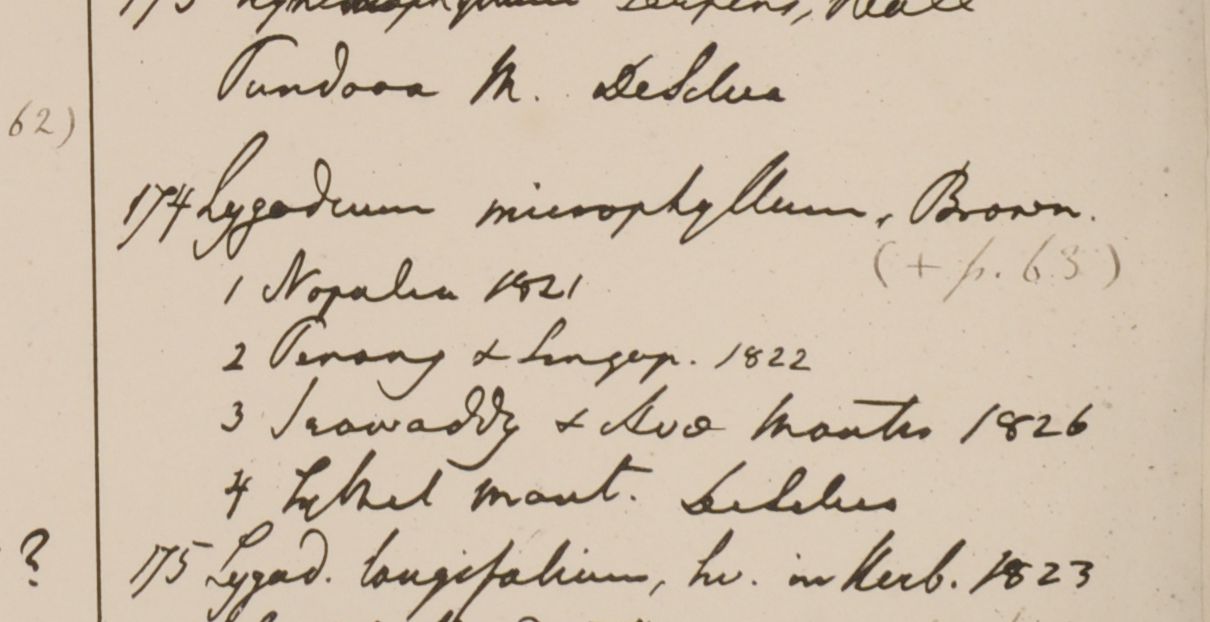 173 Hymenophyllum serpens, Wall
Pundooa M. DeSilva
62)
174 Lygodium microphyllum, Brown.
(+ p. 63)
1 Nopalia 1821
2 Penang & Singap. 1822
3 Irawaddy & Ava Montes 1826
4 Sylhet mont. DeSilva
? 175 Lygod. longifolium, hv. in Herb. 1823